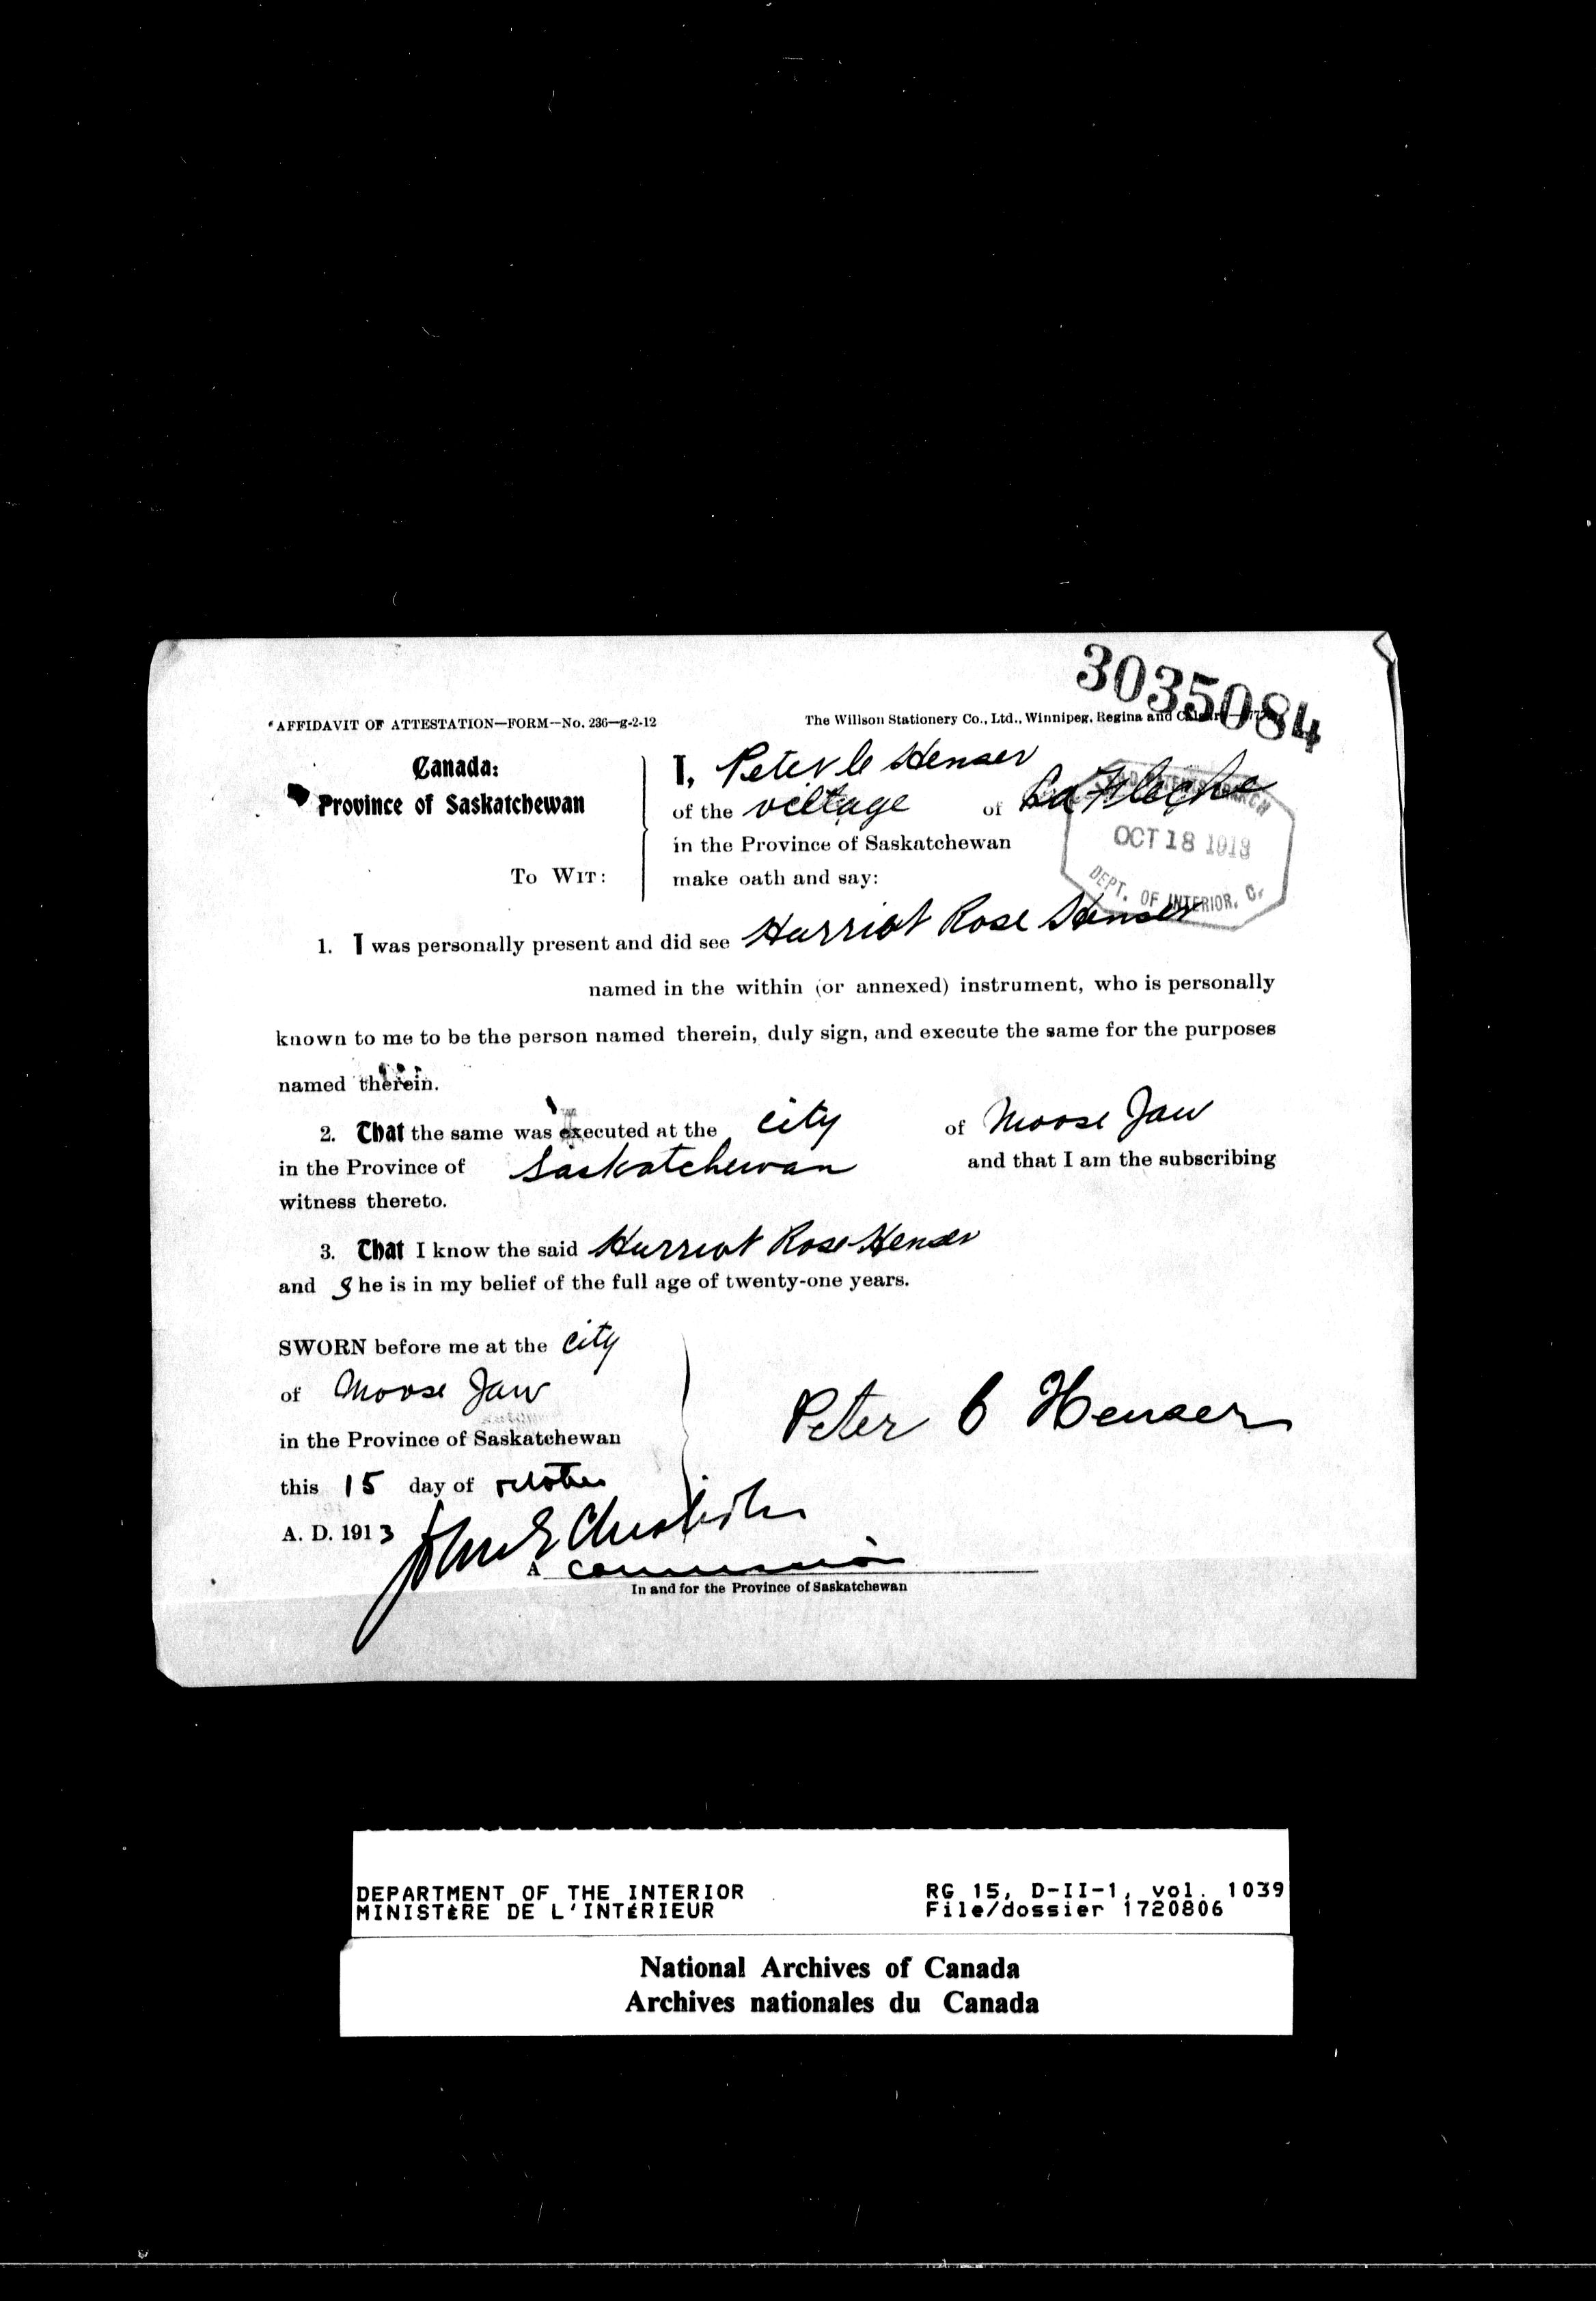 3035084
AFFIDAVIT OF ATTESTATION—FORM—No. 236—g-2-12
The Willson Stationery Co., Ltd., Winnipeg, Regina and
Canada:
Province of Saskatchewan
To Wit:
I, Peter C Henser
of the village of La Fleche
in the Province of Saskatchewan
make oath and say:
OCT 18 1913
DEPT. OF INTERIOR.
1. I was personally present and did see Harriot Rose Henser
named in the within (or annexed) instrument, who is personally
known to me to be the person named therein, duly sign, and execute the same for the purposes
named therein.
2. That the same was executed at the city of Moose Jaw
in the Province of Saskatchewan and that I am the subscribing
witness thereto.
3. That I know the said Harriot Rose Henser
and She is in my belief of the full age of twenty-one years.
SWORN before me at the city
of Moose Jaw
in the Province of Saskatchewan
this 15 day of October
A. D. 1913
Peter C Henser
A
In and for the Province of Saskatchewan
DEPARTMENT OF THE INTERIOR
MINISTÈRE DE L'INTÉRIEUR
RG 15, D-II-1, vol. 1039
File/dossier 1720806
National Archives of Canada
Archives nationales du Canada